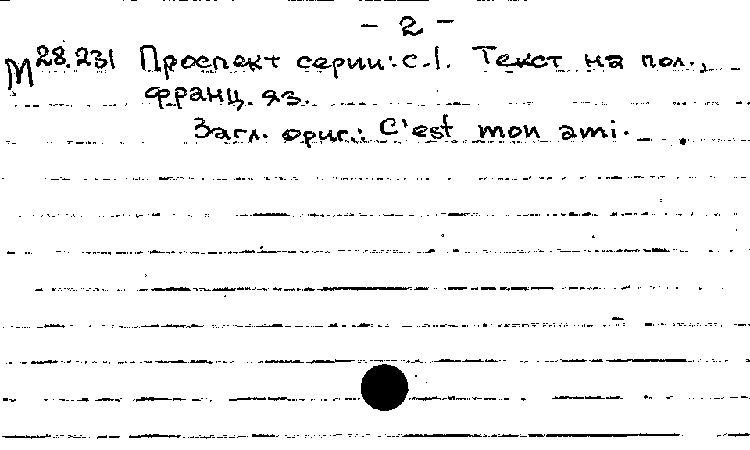 - 2 -
М 28.231 Проспект серии: с.1. Текст на пол.,
франц. яз.
Загл. ориг.: C'est mon ami.